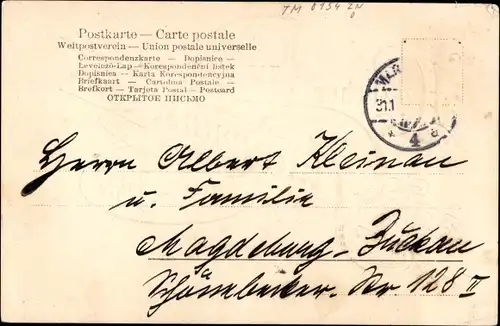 TM 0154 ZN
Postkarte — Carte postale
Weltpostverein — Union postale universelle
Correspondenzkarte — Dopisnice —
Levelező-Lap — Korespondenční listek
Dopisnica — Karta Korespondencyjna
Briefkaart — Cartolina Postale —
Brefkort — Tarjeta Postal — Postcard
ОТКРЫТОЕ ПИСЬМО
31.1
* 4 a
Herrn Albert Kleinau
u. Familie
Magdeburg-Buckau
Schönebecker. Str. 128 II